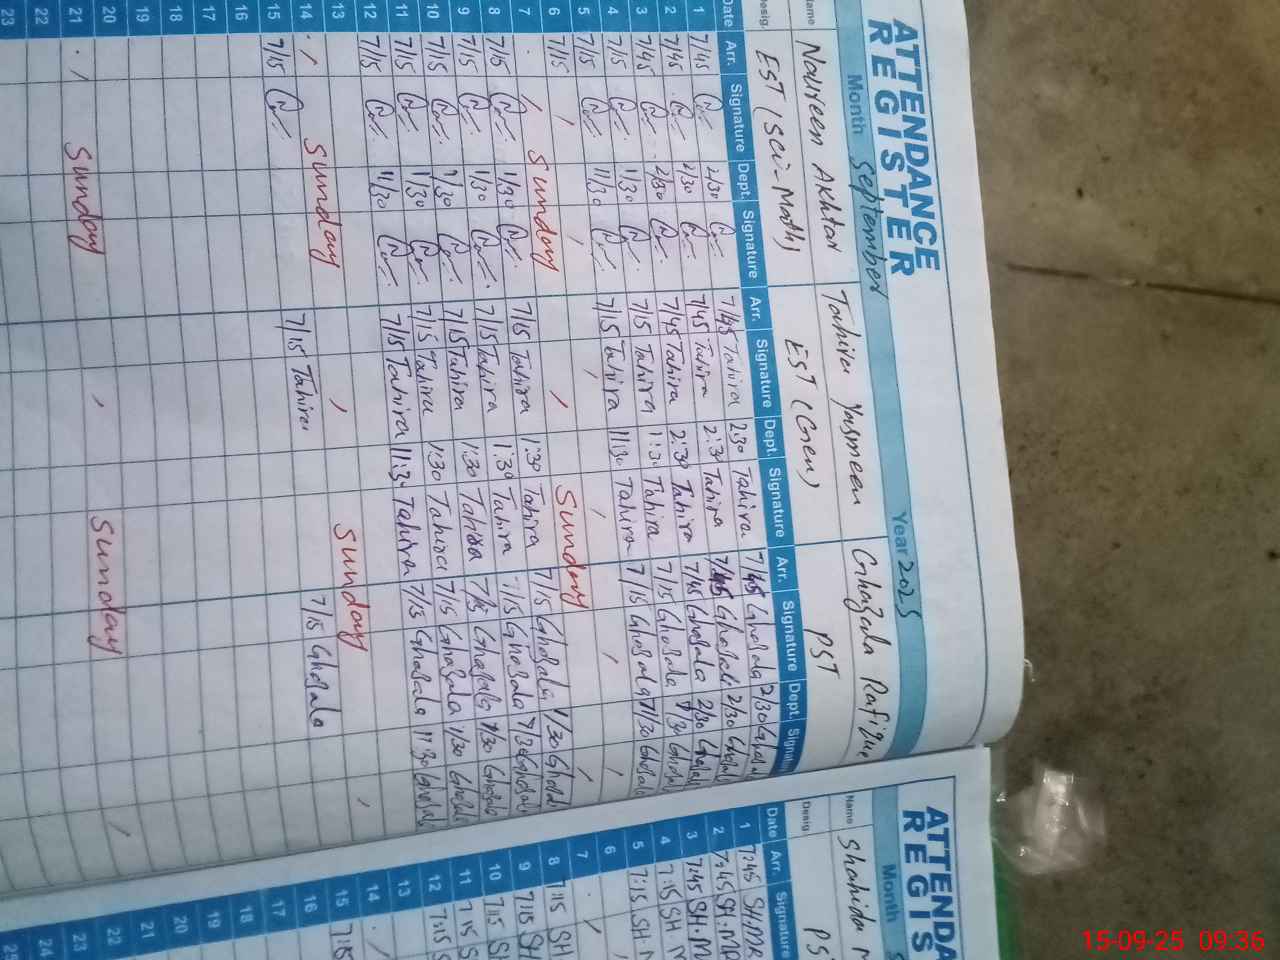 ATTENDANCE
REGISTER
Month September Year 2025
Name Noureen Akhtar Tahira Yasmeen Ghazala Rafique
Desig. EST (Sci-Math) EST (Gen) PST
Date Arr. Signature Dept. Signature Arr. Signature Dept. Signature Arr. Signature Dept. Signature
1 7/45 2/30 7/45 Tahira 2:30 Tahira 7/45 Ghazala 2/30
2 7/45 2/30 7/45 Tahira 2:30 Tahira 7/45 Ghazala 2/30
3 7/45 2/30 7/45 Tahira 2:30 Tahira 7/45 Ghazala 2/30
4 7/15 1/30 7/15 Tahira 1:30 Tahira 7/15 Ghazala 1/30
5 7/15 11/30 7/15 Tahira 11:30 Tahira 7/15 Ghazala 11/30
6 7/15
7 Sunday Sunday
8 7/15 1/30 7/15 Tahira 1:30 Tahira 7/15 Ghazala 1/30
9 7/15 1/30 7/15 Tahira 1:30 Tahira 7/15 Ghazala 1/30
10 7/15 1/30 7/15 Tahira 1:30 Tahira 7/15 Ghazala 1/30
11 7/15 1/30 7/15 Tahira 1:30 Tahira 7/15 Ghazala 1/30
12 7/15 11/30 7/15 Tahira 11:30 Tahira 7/15 Ghazala 11:30
13
14 Sunday Sunday
15 7/15 7/15 Tahira 7/15 Ghazala
16
17
18
19
20
21 Sunday Sunday
22
23
ATTENDA
REGIS
Month
Name Shahida
Desig. PS
Date Arr. Signature
1 7:45 SH.MR
2 7:45 SH.MR
3 7:45 SH.M
4 7:15 SH M
5 7:15 SH.M
6
7
8 7:15 SH
9 7:15 SH
10 7:15 SH
11 7:15 S
12 7:15
13
14
15 7:15
16
17
18
19
20
21
22
23
24
25
15-09-25 09:36